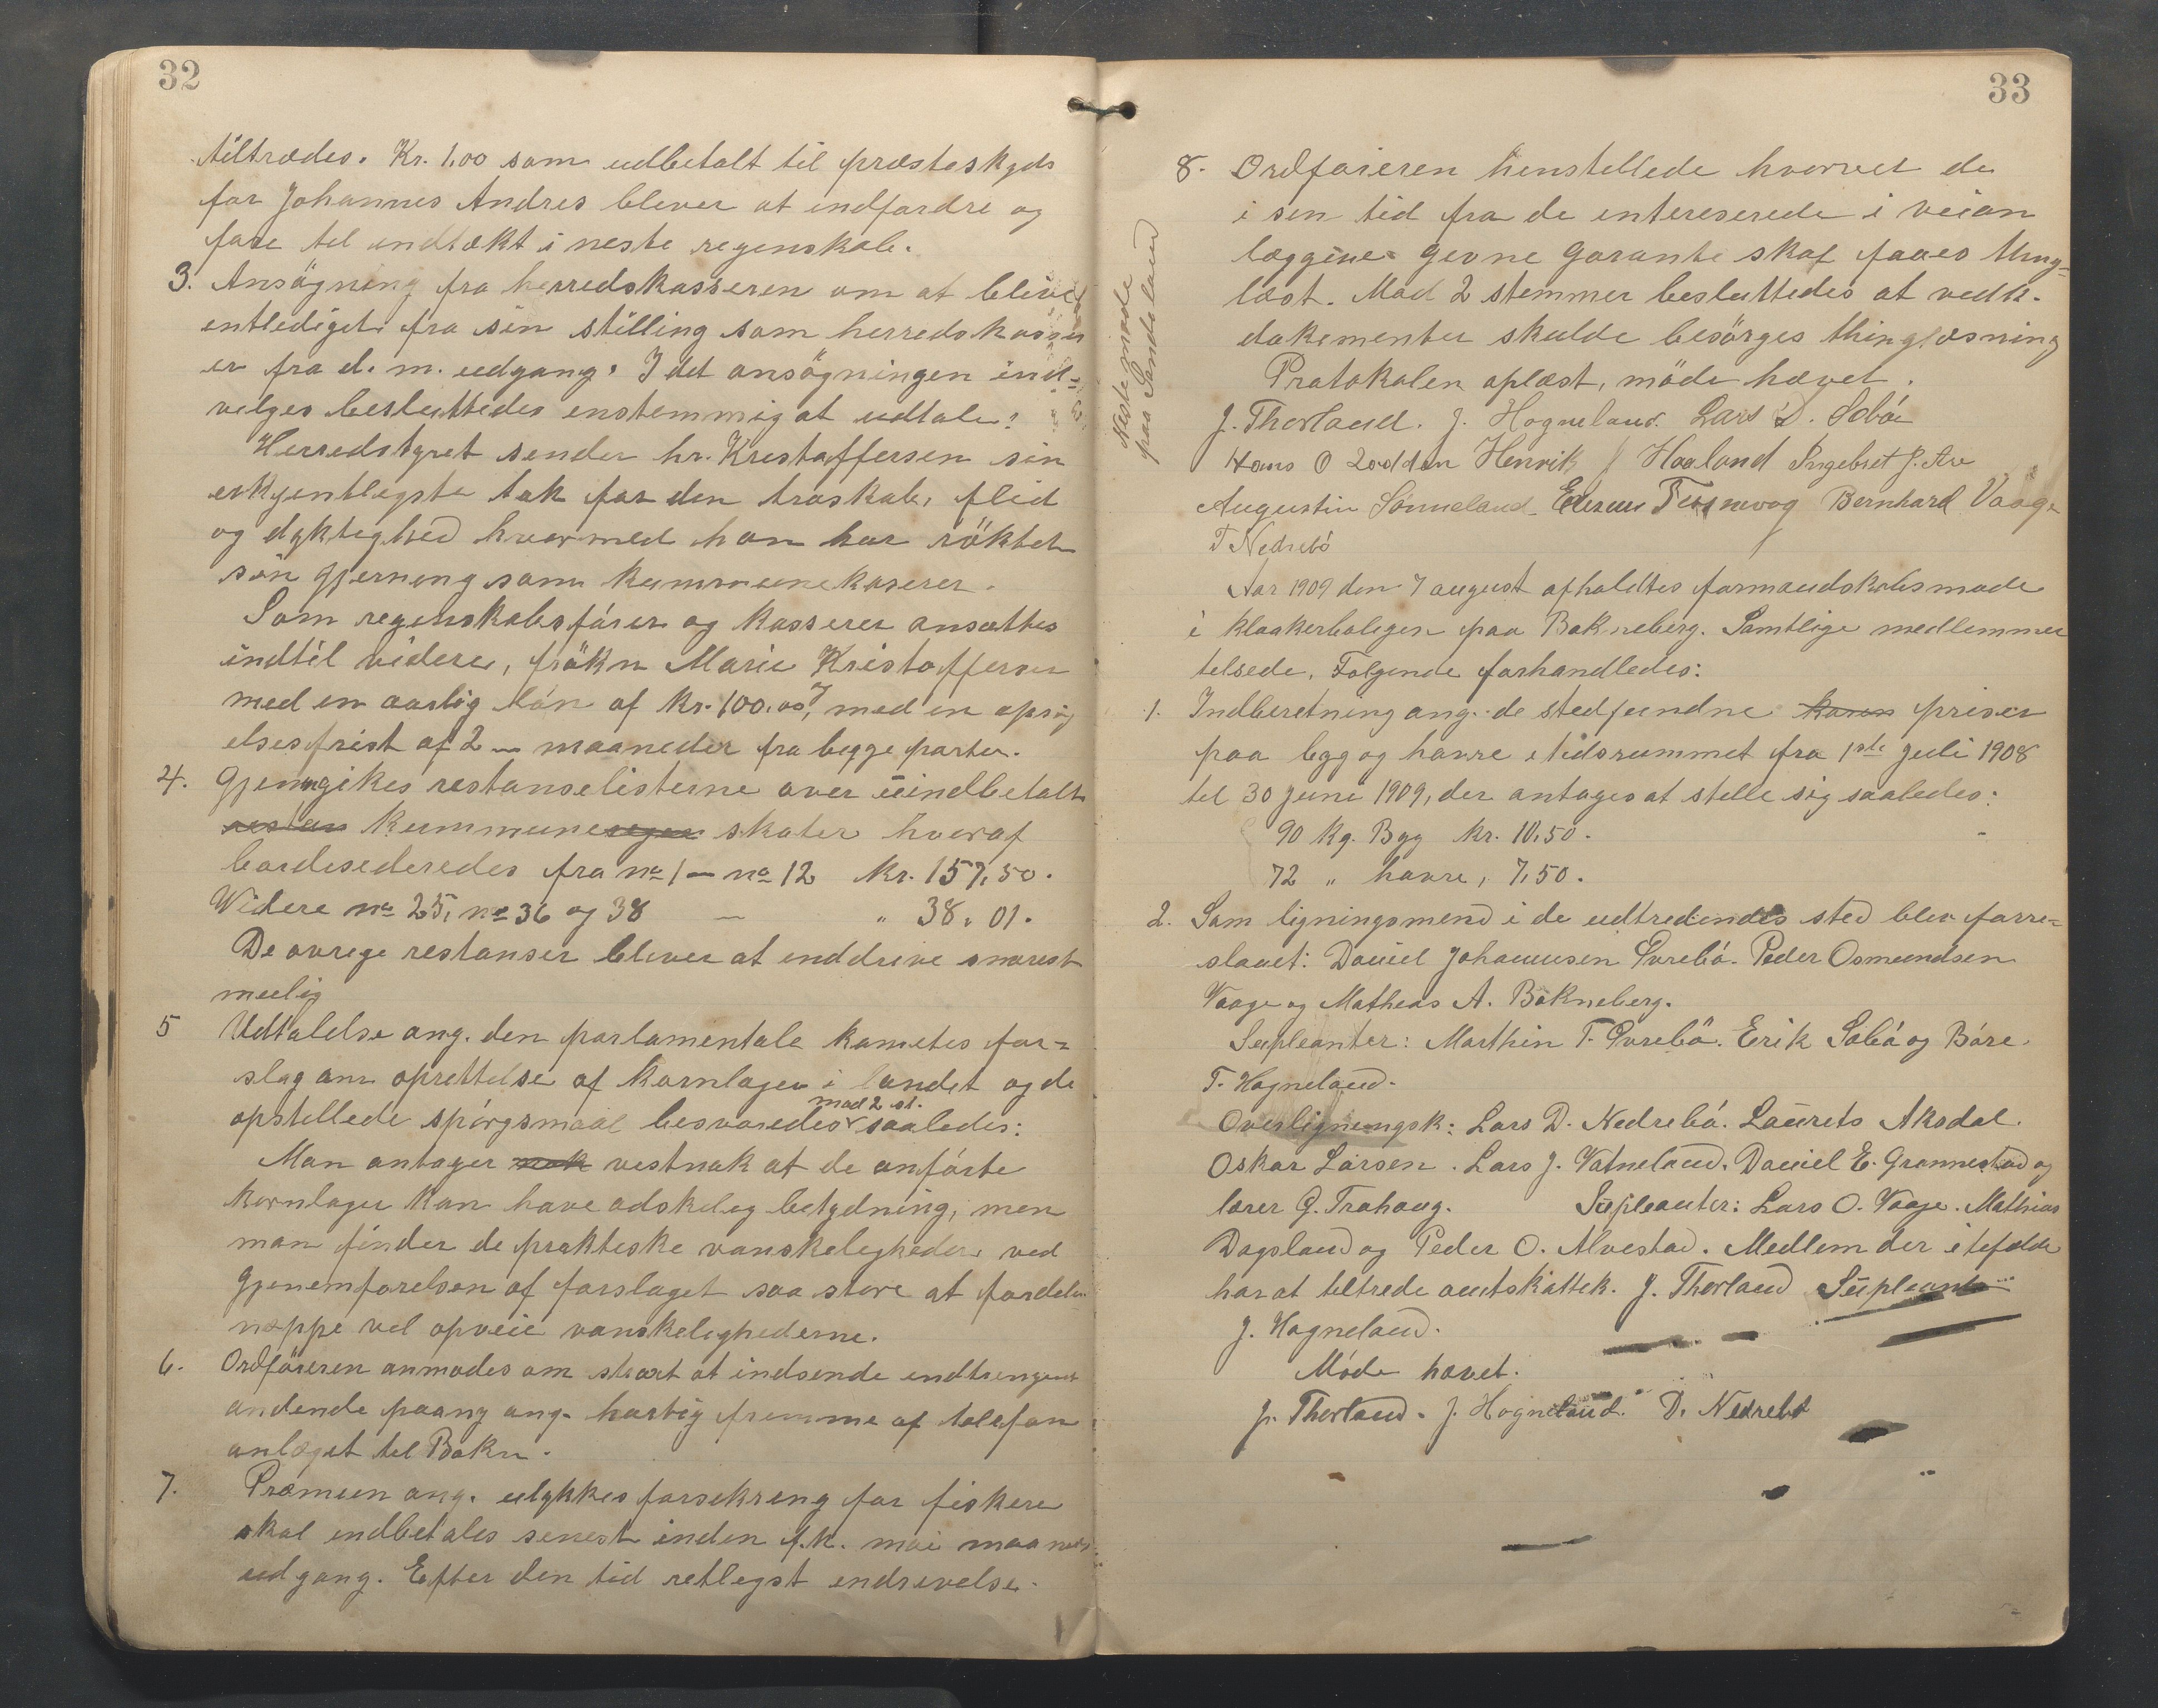 32
tiltrædes. Kr. 1.00 som udbetalt til præsteskyds
for Johannes Andres blever at indfordre og
føre til indtækt i neste regenskab.
3. Ansögning fra herredskasseren om at blive
entlediget fra sin stilling som herredskasser
er fra d. m. udgang. I det ansögningen ind-
velges besluttedes enstemmig at udtale:
Herredstyret sender hr. Kristoffersen sin
erkjentlegste tak for den troskab, flid
og dyktighed hvormed han har röktet
sin gjerning som kummunekaserer.
Som regenskabsförer og kasserer ansættes
indtil videre, frökn Marie Kristoffersen
med en aarlig lön af kr. 100.00, med en opsig
elsesfrist af 2 - maaneder fra begge parter.
4. Gjennemgikes restanselisterne over uindbetalte
restan kummuneregn skater hvoraf
bordesederedes fra no 1 - no 12 kr. 157,50.
Widere no 25, no 36 og 38 — " 38,01.
De øvrege restanser blever at inddrive snarest
muelig
5 Udtalelse ang. den parlamentale kometes for-
slag om oprettelse af kornlager i landet og de
mod 2 st.
opstellede spörgsmaal besvaredes saaledes:
Man antager nok vestnok at de anförte
kornlager kan have adskeleg betydning, men
man finder de prakteske vanskelegheder ved
gjenemförelsen af forslaget saa store at fordelen
næppe vel opveie vanskelighederne.
6. Ordföreren anmodes om straxt at indsende indtrengende
andende paany ang. hurtig fremme af telefon
anlæget til Bokn.
7. Præmien ang. ulykkesforsekreng for fiskere
skal indbetales senest inden f.k. mai maaneds
udgang. Efter den tid retlegst indrevelse.
33
Neste møde
paa Sandeland
8. Ordföreren henstellede hvorvet de
i sen tid fra de entereserede i veian
læggene gevne garante skal faaes thing-
læst. Mod 2 stemmer besluttedes at vedk.
dokementer skulde besörges thinglæsning
Protokolen oplæst, möde hævet.
J. Thorland. J. Hogneland. Lars D. Sebö
Hans O Lodden Henrik J Haaland Ingebret J. Are
Augustin Sönneland Bernhard Vaage
T Nedrebö
Aar 1909 den 7 august afholdtes formandskabsmøde
i klokkerboligen paa Bokneberg. Samtlige medlemmer
telsede. Følgende forhandledes:
1. Indberetning ang. de stedfundne korn priser
paa bygg og havre i tidsrummet fra 1ste juli 1908
til 30 juni 1909, der antages at stelle sig saaledes:
90 kg. Byg kr. 10,50.
72 " havre, 7,50.
2. Som ligningsmend i de udtredendes sted blev forre-
slaaet: Daniel Johannesen Övrebö. Peder Osmundsen
Vaage og Mathias A. Bokneberg.
Supleanter: Marthin T. Övrebö. Erik Sebö og Böre
T. Hogneland.
Overligningsk: Lars D. Nedrebö. Laurets Aksdal.
Oskar Larsen. Lars J. Vatneland. Daniel E. Grønnestad og
lærer G. Trohaug. Supleanter: Lars O. Vaage. Mathias
Dagsland og Peder O. Alvestad. Medlem der i tefælde
har at teltrede amtskattek. J. Thorland Supleant
J. Hogneland.
Möde hævet.
J. Thorland. J. Hogneland. D. Nedrebö